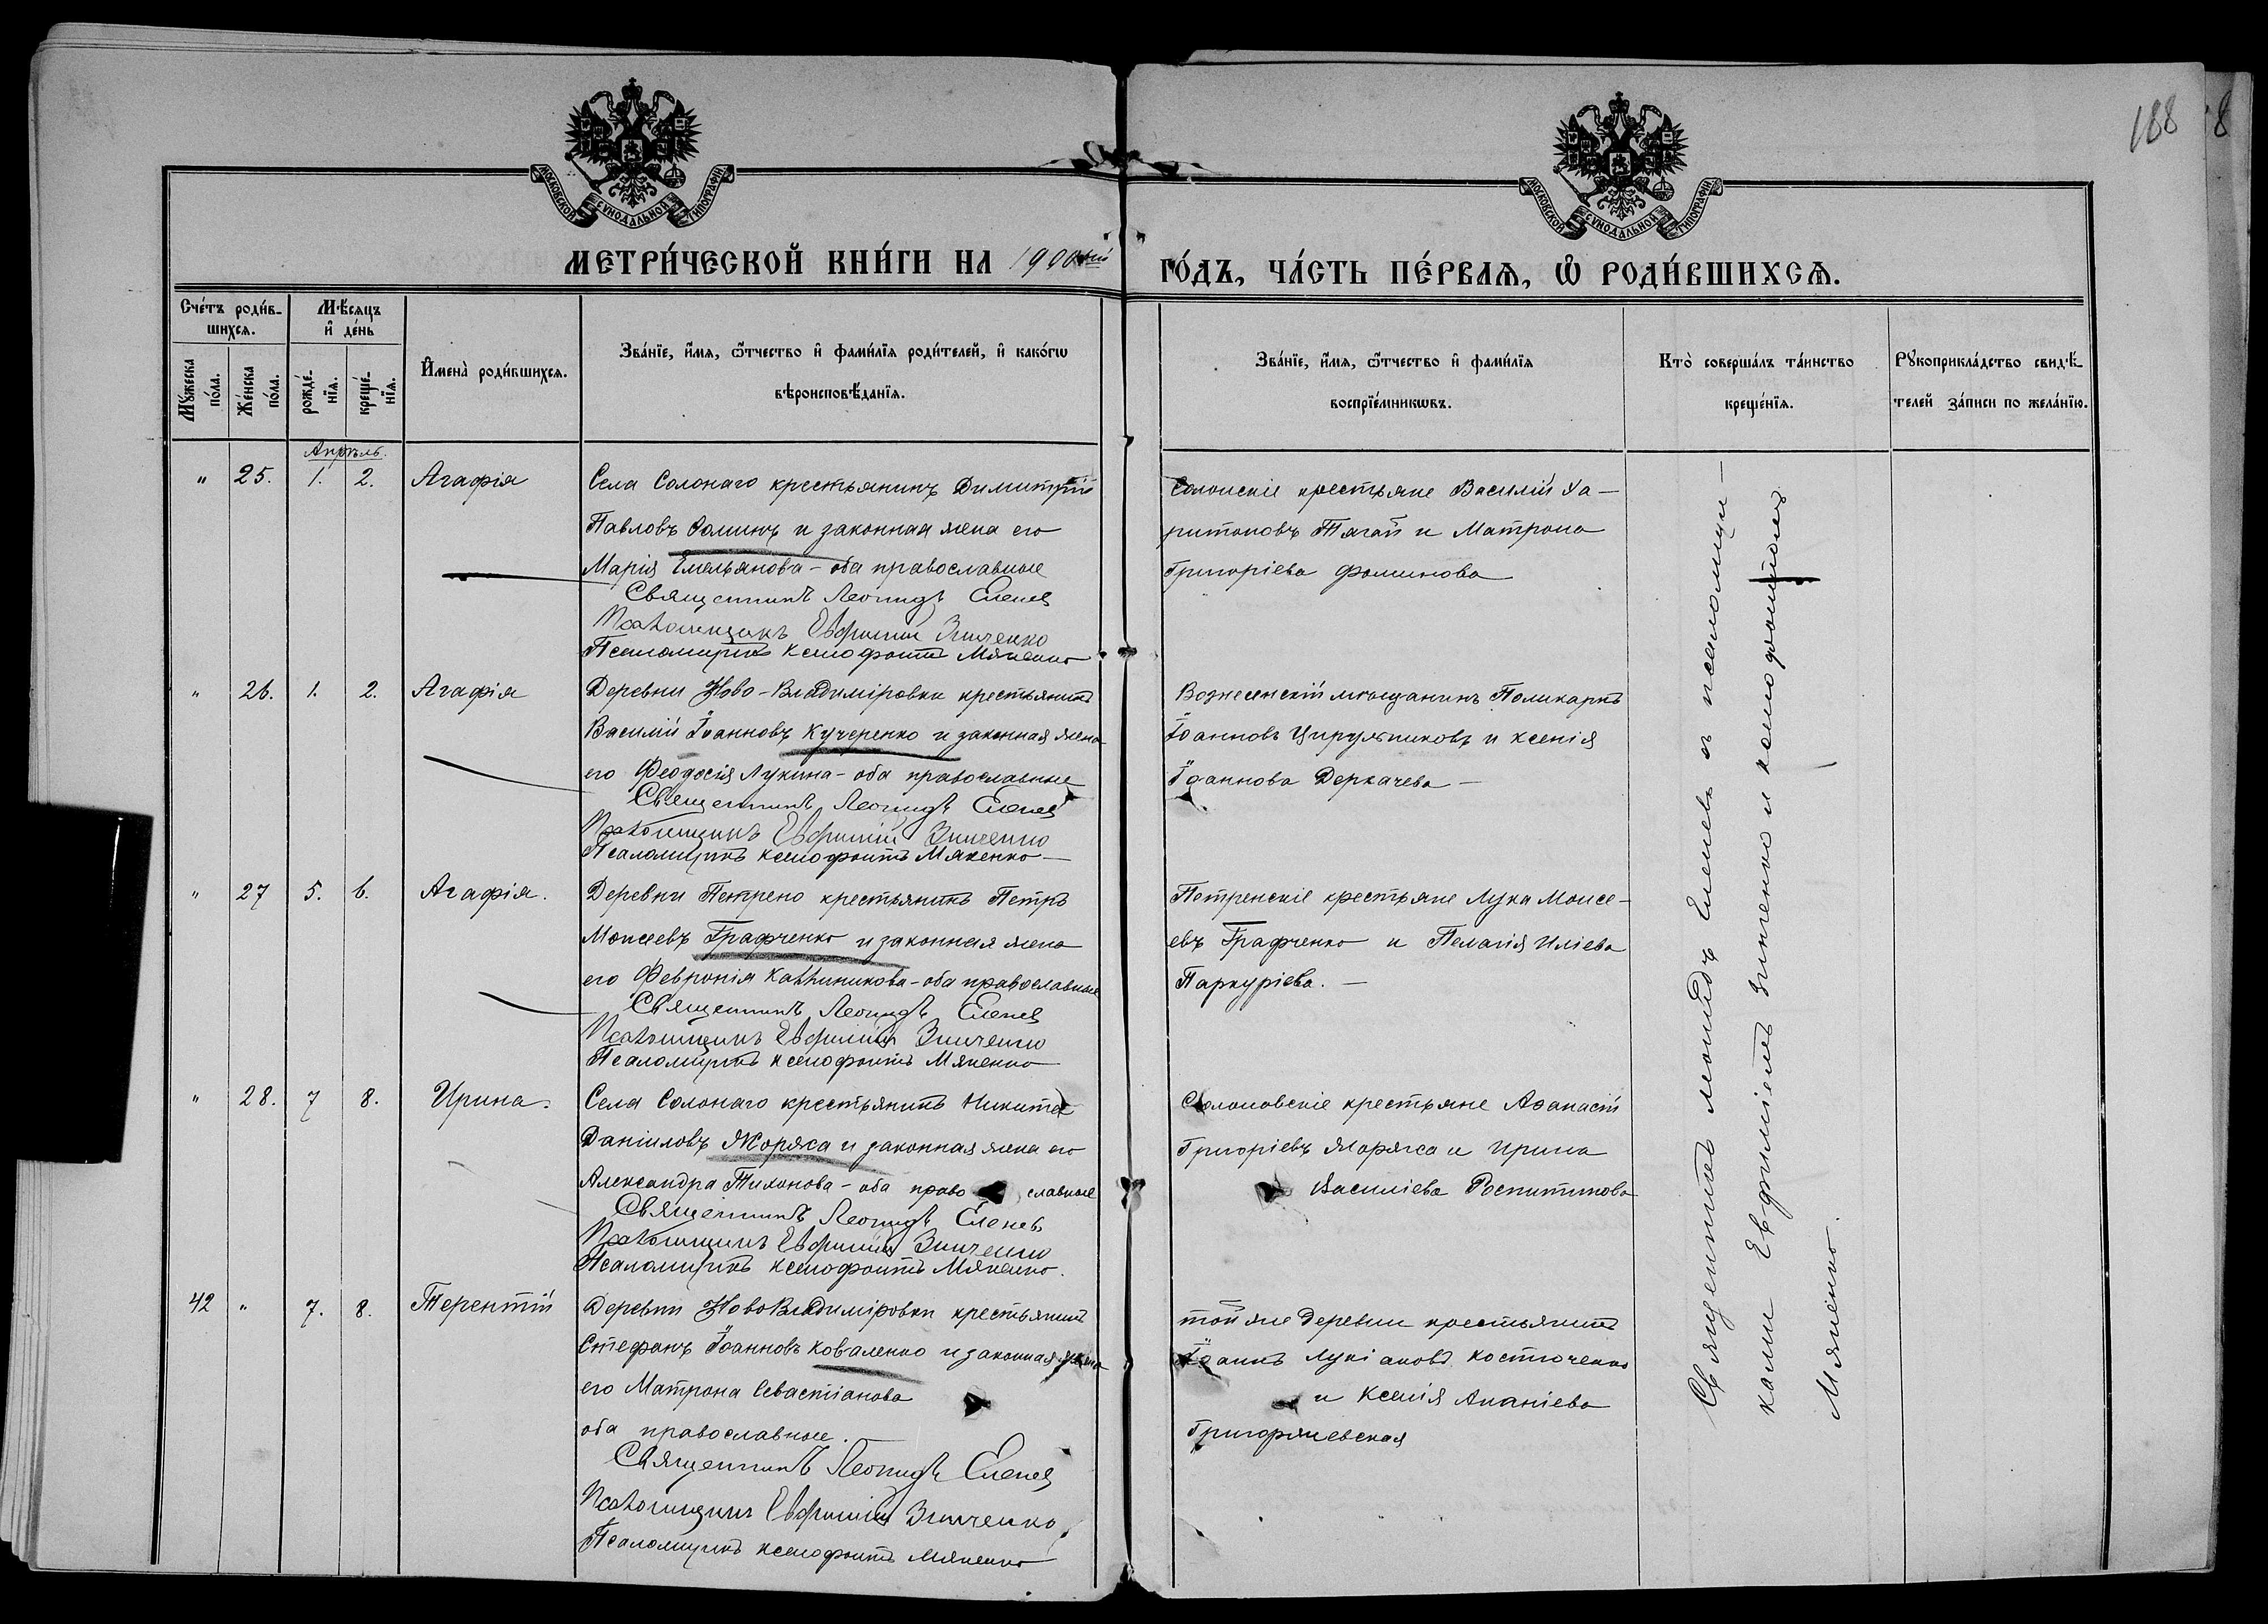 188
8
МОСКОВСКОЙ СѴНОДАЛЬНОЙ ТИПОГРАФІИ
МОСКОВСКОЙ СѴНОДАЛЬНОЙ ТИПОГРАФІИ
МЕТРИ́ЧЕСКОЙ КНИ́ГИ НА 1900ый ГО́ДЪ, ЧА́СТЬ ПЕ́РВАѦ, Ѡ҆ РОДИ́ВШИХСѦ.
Сче́тъ роди́в-
шихсѧ.
Мѣ́сѧцъ
и҆ де́нь
Мꙋ́жеска
по́ла.
Же́нска
по́ла.
рожде́-
нїѧ.
креще́-
нїѧ.
И҆мена̀ роди́вшихсѧ.
Зва́нїе, и҆́мѧ, ѻ҆́тчество и҆ фами́лїѧ роди́телей, и҆ како́гѡ
вѣроисповѣ́данїѧ.
Зва́нїе, и҆́мѧ, ѻ҆́тчество и҆ фами́лїѧ
воспрїе́мникѡвъ.
Кто̀ соверша́лъ та́инство
креще́нїѧ.
Рꙋкоприкла́дство свидѣ́-
телей за́писи по жела́нїю.
Апрѣль.
" 25. 1. 2. Агафія
Села Солонаго крестьянинъ Димитрій
Павловъ Ѳоминъ и законная жена его
Марія Емельянова - оба православные
Священникъ Леонидъ Еленев
Псаломщикъ Евфимій Зинченко
Псаломщикъ Ксенофонтъ Мякенко
Солонскіе крестьяне Василій Ха-
ритоновъ Тягай и Матрона
Григоріева Фоминова
" 26. 1. 2. Агафія
Деревни Ново-Владиміровки крестьянинъ
Василій Іоанновъ Кучеренко и законная жена
его Феодосія Лукина - оба православные
Священникъ Леонидъ Еленев
Псаломщикъ Евфимій Зинченко
Псаломщикъ Ксенофонтъ Мякенко -
Вознесенскій мѣщанинъ Поликарпъ
Іоанновъ Цирульниковъ и Ксенія
Іоаннова Деркачева -
" 27 5. 6. Агафія.
Деревни Петрено крестьянинъ Петръ
Моисеевъ Графченко и законная жена
его Февронія Каллиникова - оба православные
Священникъ Леонидъ Еленев
Псаломщикъ Евфимій Зинченко
Псаломщикъ Ксенофонтъ Мякенко
Петренскіе крестьяне Лука Моисе-
евъ Графченко и Пелагія Иліева
Паркуріева. -
" 28. 7 8. Ирина.
Села Солонаго крестьянинъ Никита
Даніиловъ Моряса и законная жена его
Александра Тихонова - оба право славные
Священникъ Леонидъ Еленев
Псаломщикъ Евфимій Зинченко
Псаломщикъ Ксенофонтъ Мякенко.
Солоновскіе крестьяне Аѳанасій
Григоріевъ Моряса и Ирина
Василіева Роспитинова
42 " 7. 8. Терентій
Деревни НовоВладиміровки крестьянинъ
Стефанъ Іоанновъ Коваленко и законная жена
его Матрона Севастіанова
оба православные.
Священникъ Леонидъ Еленев
Псаломщикъ Евфимій Зинченко
Псаломщикъ Ксенофонтъ Мякенко
той же деревни крестьянинъ
Іоаннъ Лукіановъ Костюченко
и Ксенія Ананіева
Григоряшевская
Священникъ Леонидъ Еленевъ съ псаломщи-
ками Евфиміемъ Зинченко и Ксенофонтомъ
Мякенко.